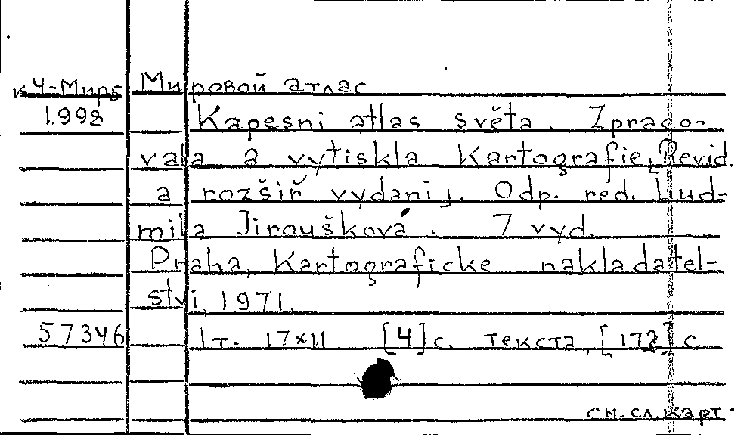 к4-Мирs Мировой атлас
1.998 Kapesni atlas světa. Zpraco-
vala a vytiskla Kartografie [Revid.
a rozšiř vydani]. Odp. red. Lud-
mila Jiroušková. 7 vyd.
Praha, Kartograficke nakladatel-
stvi, 1971.
57346 1т. 17×11 [4] с. текста, [172] с
см. сл. карт.